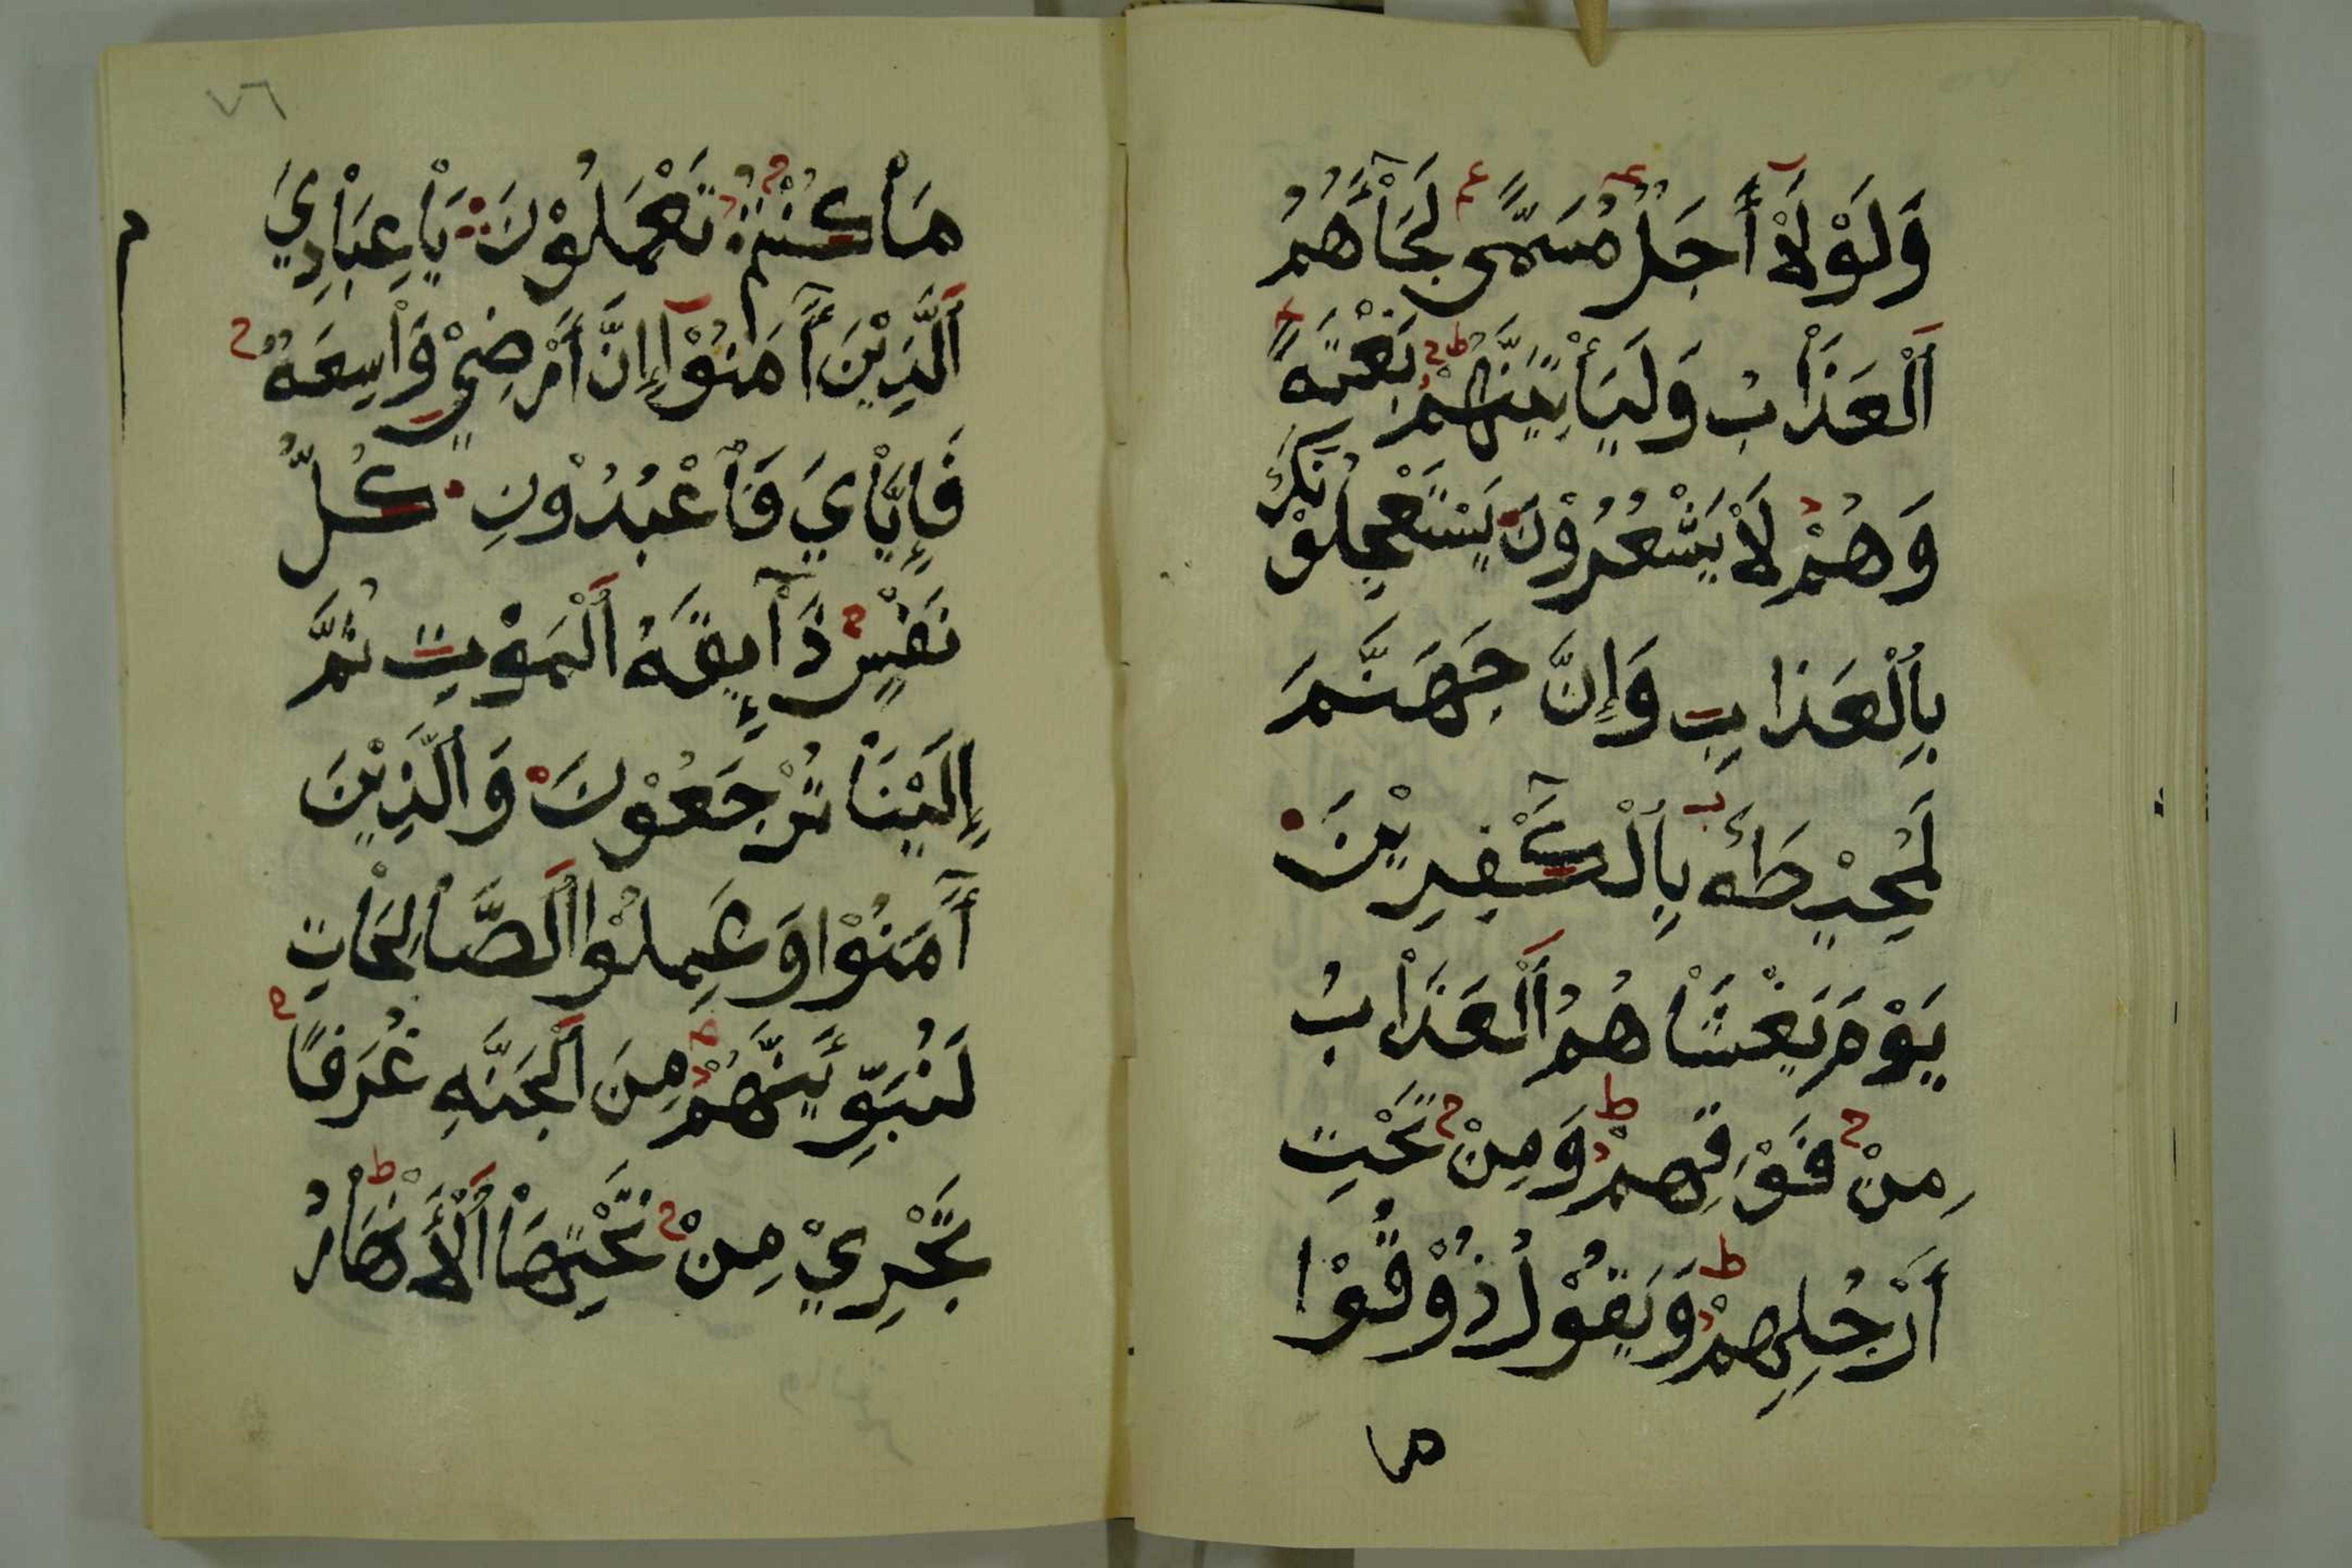 وَلَوْلَاْ أَجَلٌ مُسَمًّى لَجَاْءَهُمُ
اَلْعَذَاْبُ وَلَيَأْتِيَنَّهُمْ بَغْتَةً
وَهُمْ لَاْ يَشْعُرُوْنَ يَسْتَعْجِلُوْنَكَ
بِالْعَذَابِ وَإِنَّ جَهَنَّمَ
لَمُحِيْطَةٌ بِالْكَٰفِرِيْنَ
يَوْمَ يَغْشَاْهُمُ اَلْعَذَاْبُ
مِنْ فَوْقِهِمْ وَمِنْ تَحْتِ
أَرْجُلِهِمْ وَيَقُوْلُ ذُوْقُوْا
ما
٧٦
مَاْ كُنْتُمْ تَعْمَلُوْنَ يَاْعِبَاْدِيَ
اَلَّذِيْنَ أٓمَنُوْآ إِنَّ أَرْضِيْ وَاْسِعَةٌ
فَإِيَّاْيَ فَاعْبُدُوْنِ كُلُّ
نَفْسٍ ذَآئِقَةُ اَلْمَوْتِ ثُمَّ
إِلَيْنَاْ تُرْجَعُوْنَ وَالَّذِيْنَ
أٓمَنُوْا وَعَمِلُوْا اَلصَّاْلِحَاْتِ
لَنُبَوِّئَنَّهُمْ مِنَ اَلْجَنَّةِ غُرَفًا
تَجْرِيْ مِنْ تَحْتِهَاْ اَلْأَنْهَاْرُ